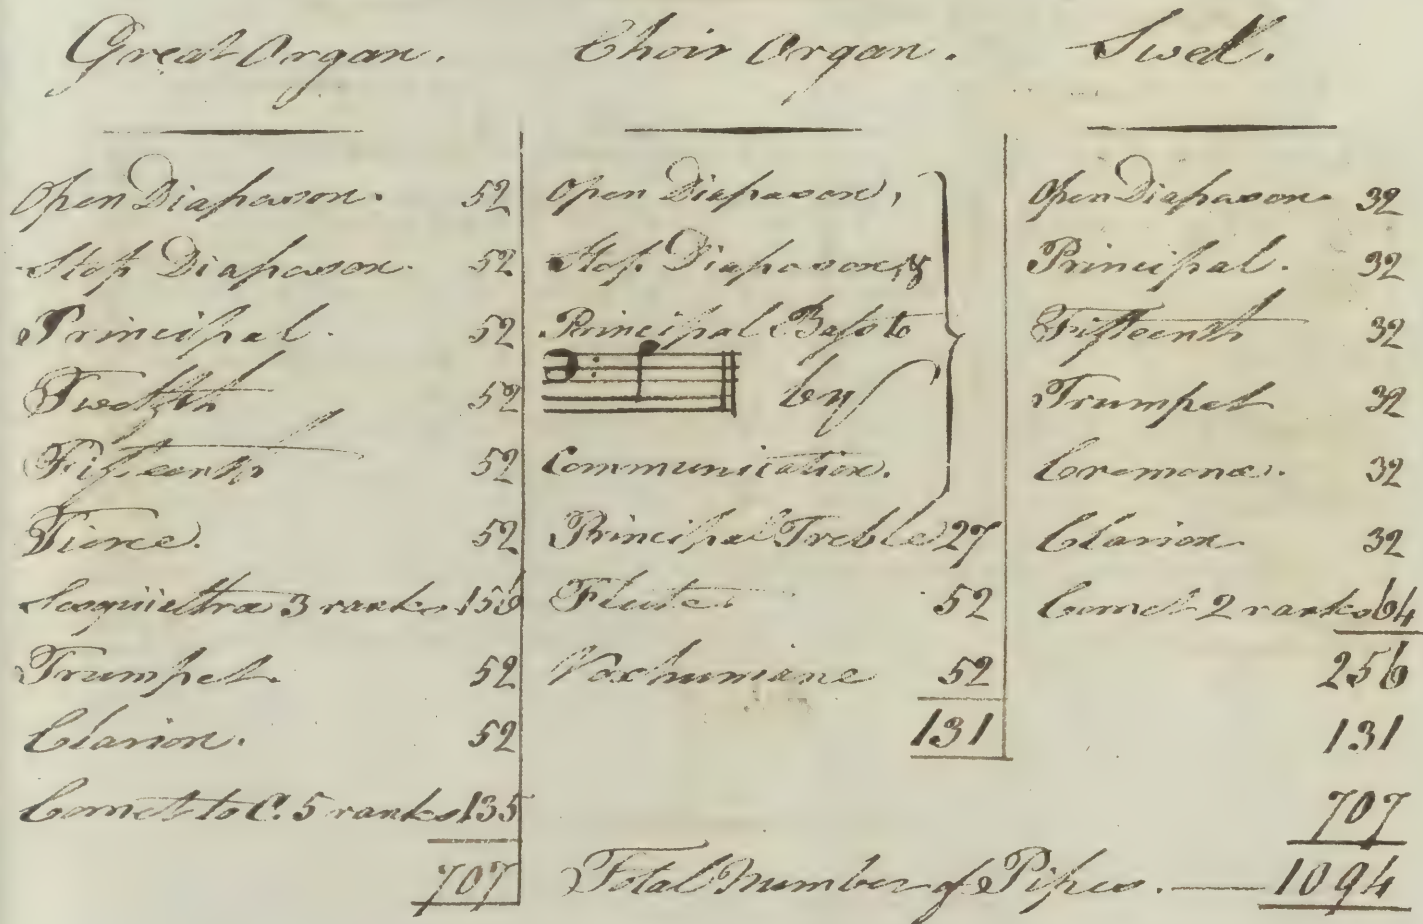 Great Organ.
Open Diapason. 52
Stop Diapason. 52
Principal. 52
Twelfth 52
Fifteenth 52
Tierce. 52
Sesquialtra 3 ranks 156
Trumpet. 52
Clarion. 52
Cornet to C. 5 ranks 135
707
Choir Organ.
Open Diapason,
Stop Diapason, &
Principal Bass to
by
Communication.
Principal Treble 27
Flute. 52
Vox humane 52
131
Swell.
Open Diapason 32
Principal. 32
Fifteenth 32
Trumpet 32
Cremona. 32
Clarion 32
Cornet 2 ranks 64
256
131
707
Total Number of Pipes. — 1094